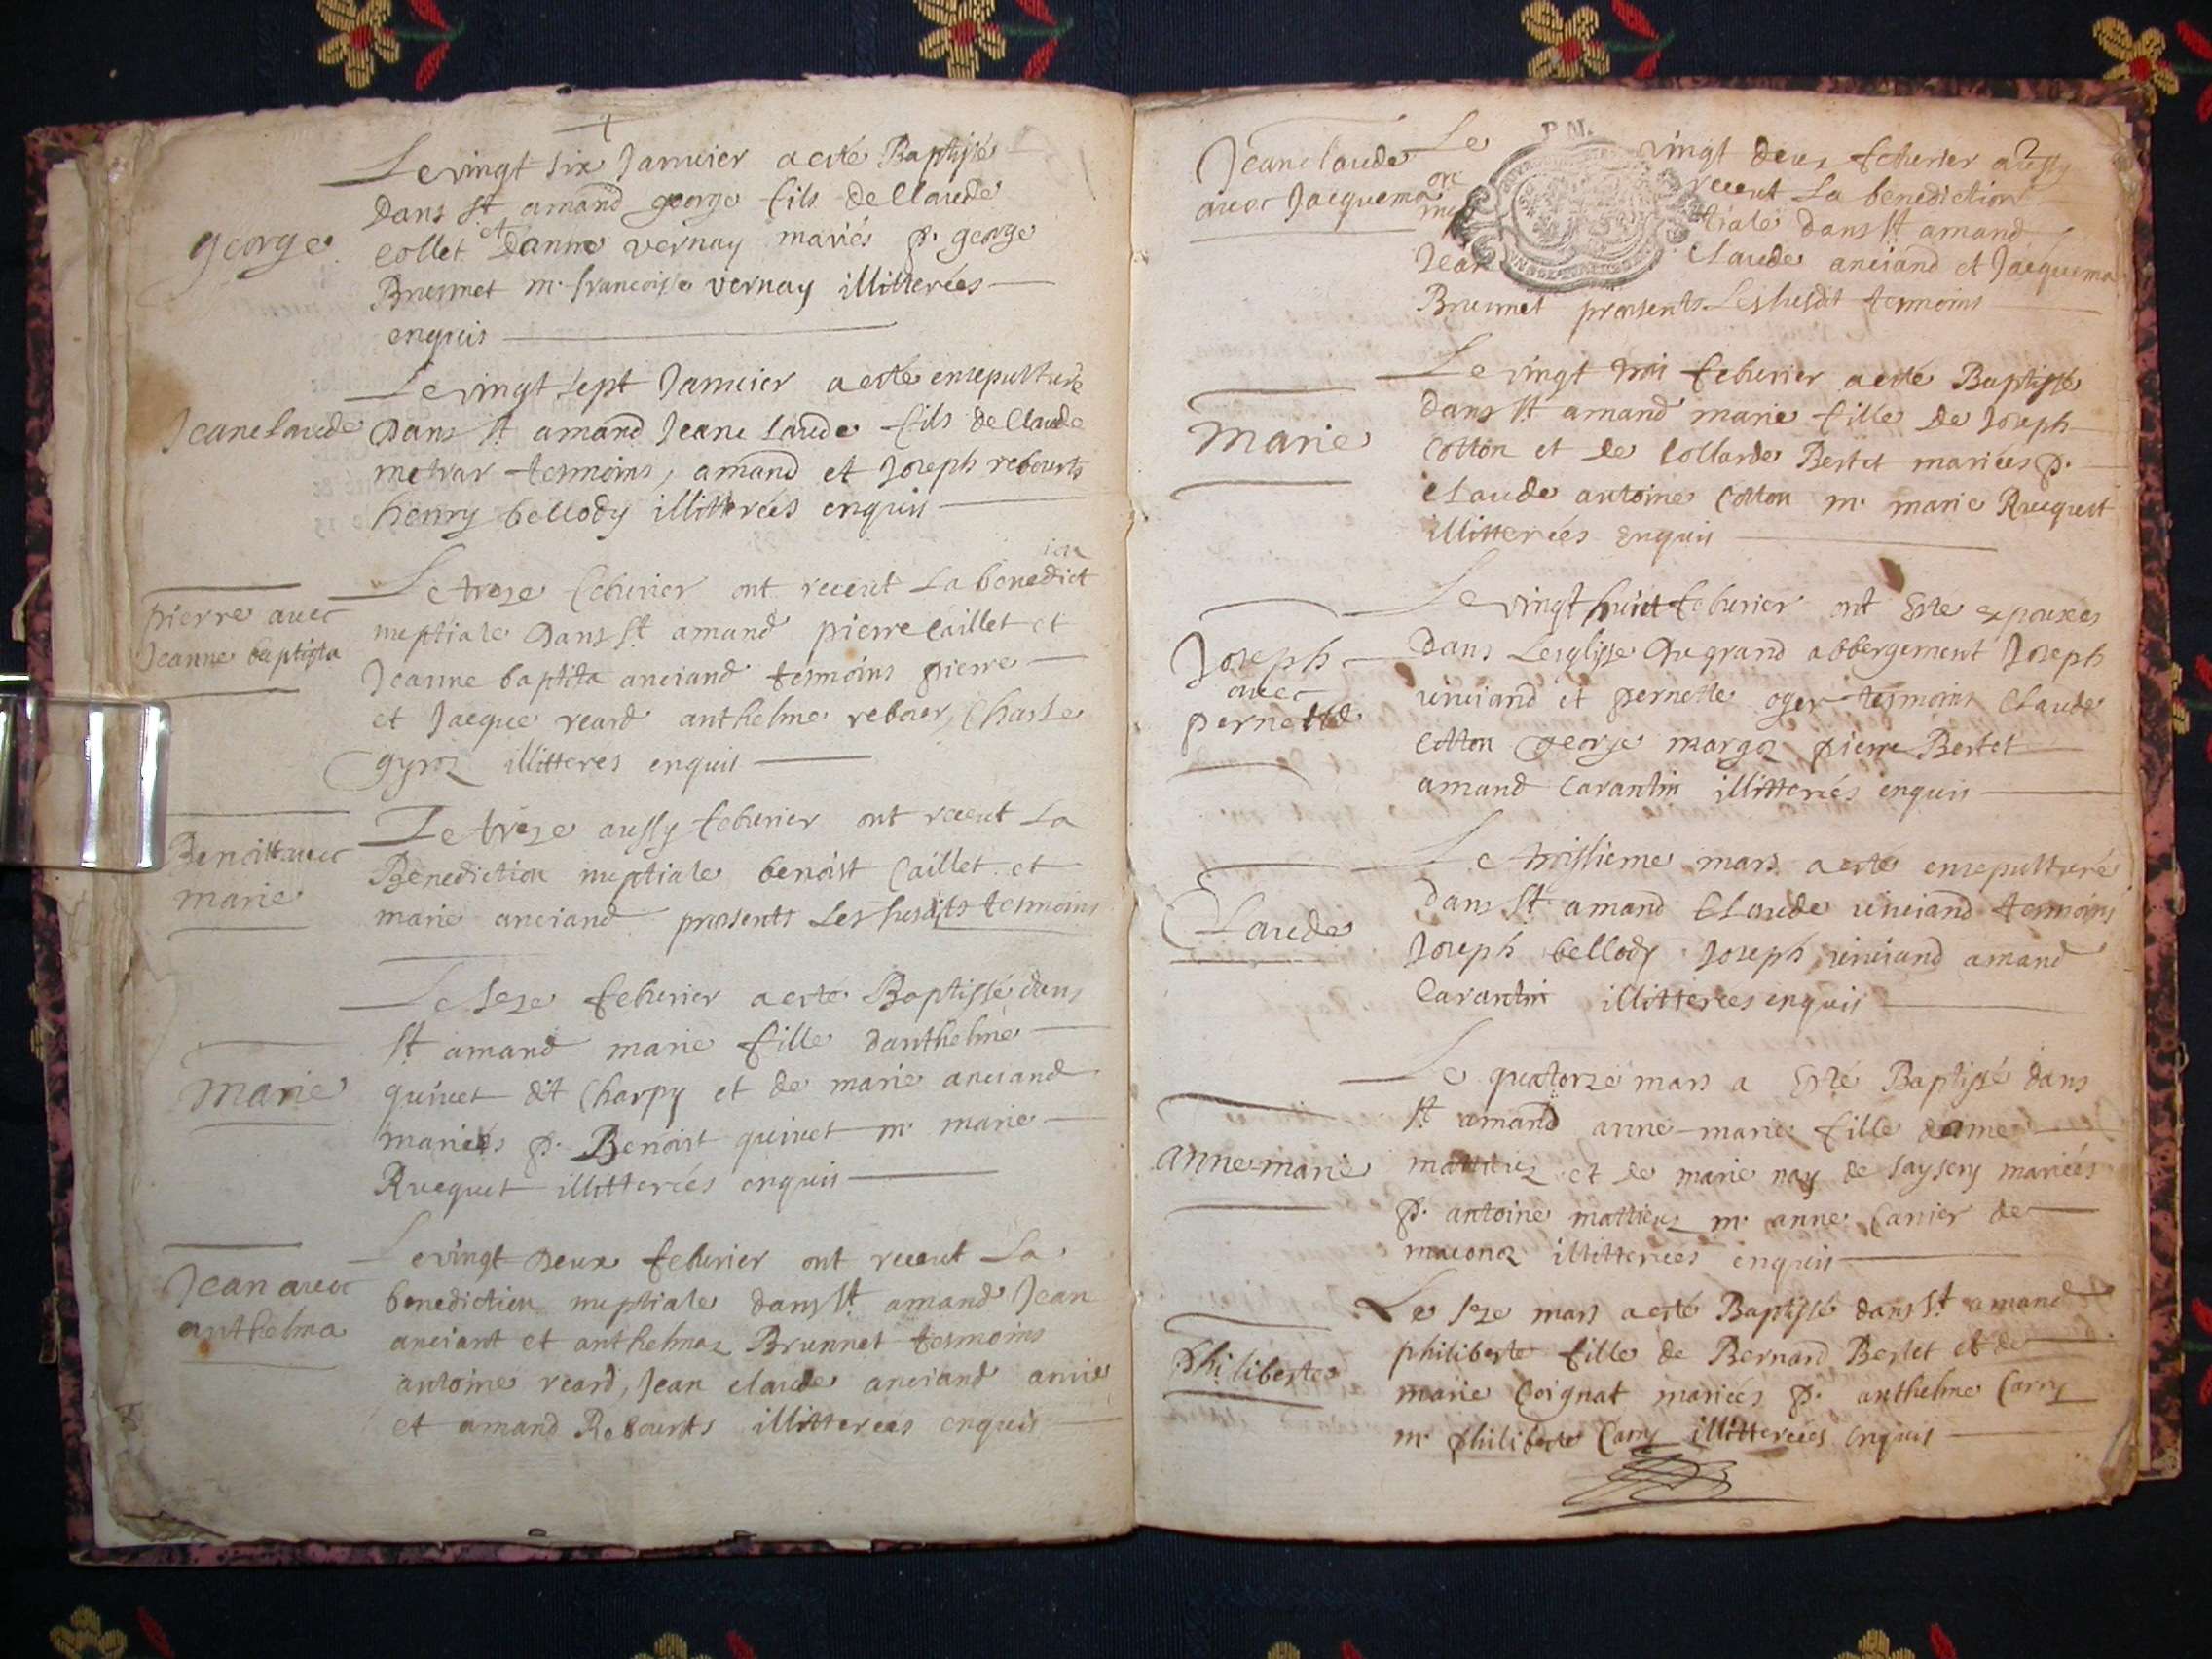 Le vingt six Januier a esté Baptisé
Dans St amand george fils de Claude
george
Collet et Danne vernay mariés p. george
Brunnet m. francoise vernay illitterées
enquis
Le vingt sept Januier a esté ensepulturé
Jeanclaude
Dans St amand Jean claude fils de Claude
metrar tesmoins, amand et Joseph rebourts
henry bellody illitterées enquis
Le treze feburier ont receut La benediction
pierre avec
Jeanne baptista
nuptiale Dans St amand pierre Caillet et
Jeanne baptista anciand tesmoins pierre
et Jacque reard anthelme rebour, Charle
gyroz illitterés enquis
Le treze aussy feburier ont receut La
Benoitt avec
marie
Benediction nuptiale benoist Caillet et
marie anciand presents Lesusdits tesmoins
Le seze feburier a esté Baptissé dans
St amand marie fille danthelme
marie
quinet dit Charpy et de marie anciand
mariées p. Benoist quinet m. marie
Ruequet illitterées enquis
Le vingt Deux feburier ont receut La
Jean avec
anthelma
benediction nuptiale dans St amand Jean
anciant et anthelmaz Brunnet tesmoins
antoine reard, Jean claude anciand
et amand Rebourts illitterées enquis
P.M.
Jeanclaude
avec Jacquema
Le vingt deux feburier aussy
receut La benediction
tiale dans St amand
Jean Claude anciand et Jacquema
Brunnet presents Lesusdit tesmoins
Le vingt trois feburier a esté Baptissé
marie
dans St amand marie fille de Joseph
Cotton et de Collarde Bertet mariées p.
Claude antoine Cotton m. marie Ruequet
illitterées enquis
Le vingt huict feburier ont Esté espousées
Joseph
avec
pernette
Dans Lesglisse du grand abbergement Joseph
unciand et pernette oger tesmoins Claude
Cotton george margoz pierre Bertet
amand Carantin illitterées enquis
Le troissieme mars a esté ensepulturé
Claude
dans St amand Claude unciand tesmoins
Joseph bellody Joseph unciand amand
Carantin illitterées enquis
Le quatorze mars a Esté Baptissé dans
St amand anne-marie fille
anne-marie
mattieuz et de marie nay de saysery mariées
p. antoine mattieuz m. anne Carrier de
maconoz illitterées enquis
Le seze mars a esté Baptissé dans St amand
philiberte
philiberte fille de Bernard Bertet et de
marie Coignat mariées p. anthelme Carry
m. philiberte Carry illitterées enquis